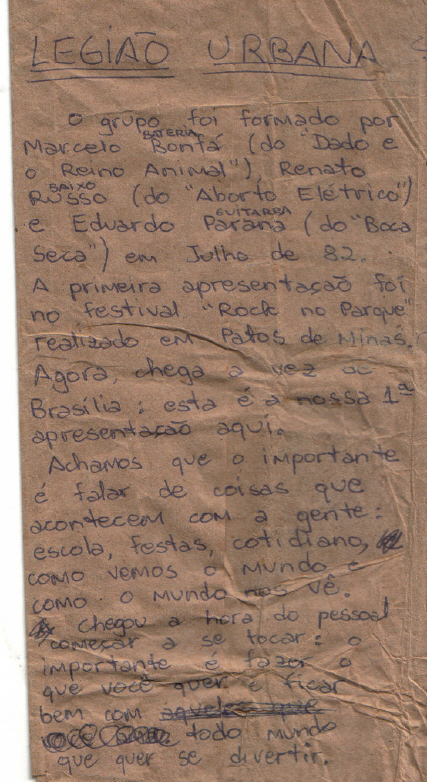 LEGIÃO URBANA
O grupo foi formado por
BATERIA
Marcelo Bonfá (do "Dado e
o Reino Animal"), Renato
BAIXO
Russo (do "Aborto Elétrico")
GUITARRA
e Eduardo Paraná (do "Boca
Seca") em Julho de 82.
A primeira apresentação foi
no festival "Rock no Parque"
realizado em Patos de Minas.
Agora, chega a vez de
Brasília: esta é a nossa 1ª
apresentação aqui.
Achamos que o importante
é falar de coisas que
acontecem com a gente:
escola, festas, cotidiano,
como vemos o mundo e
como o mundo nos vê.
Chegou a hora do pessoal
começar a se tocar: o
importante é fazer o
que você quer e ficar
bem com aqueles que
todo mundo
que quer se divertir.